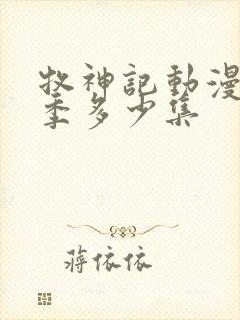 牧神記動漫
季多少集
蔣依依